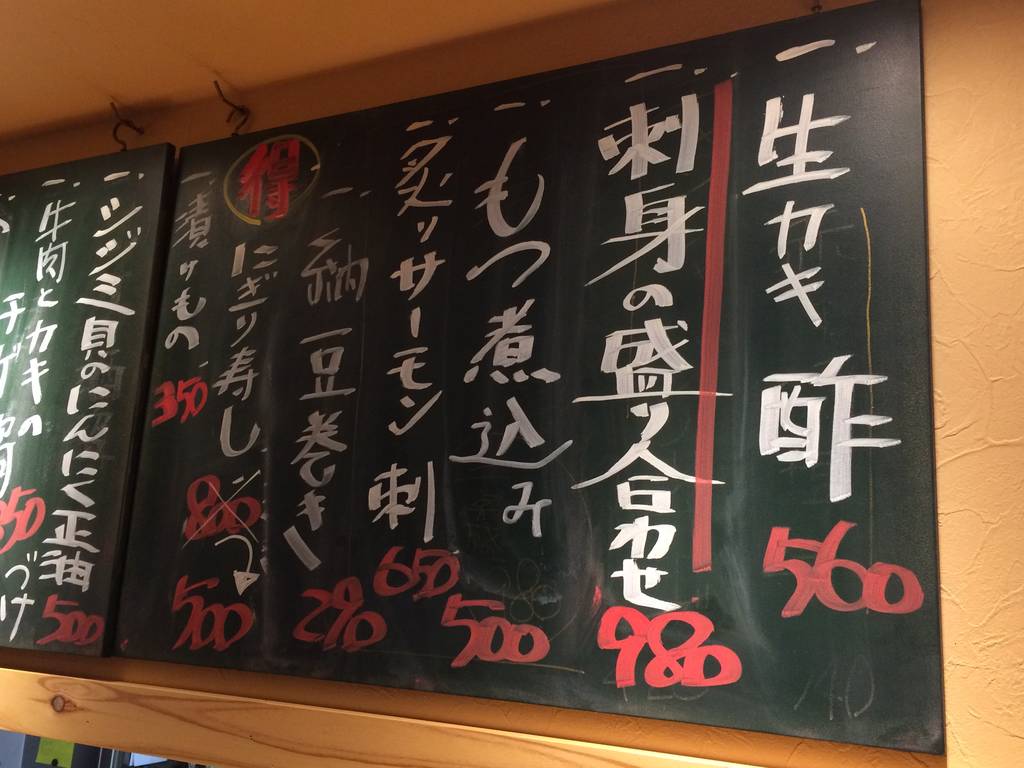 一. 生カキ酢 560
一. 刺身の盛り合わせ 980
一. もつ煮込み 500
一. 炙りサーモン刺 650
一. 納豆巻き 290
得 にぎり寿し 800 500
一. 漬けもの 350
一. シジミ貝のにんにく正油 500
一. 牛肉とカキの
づけ